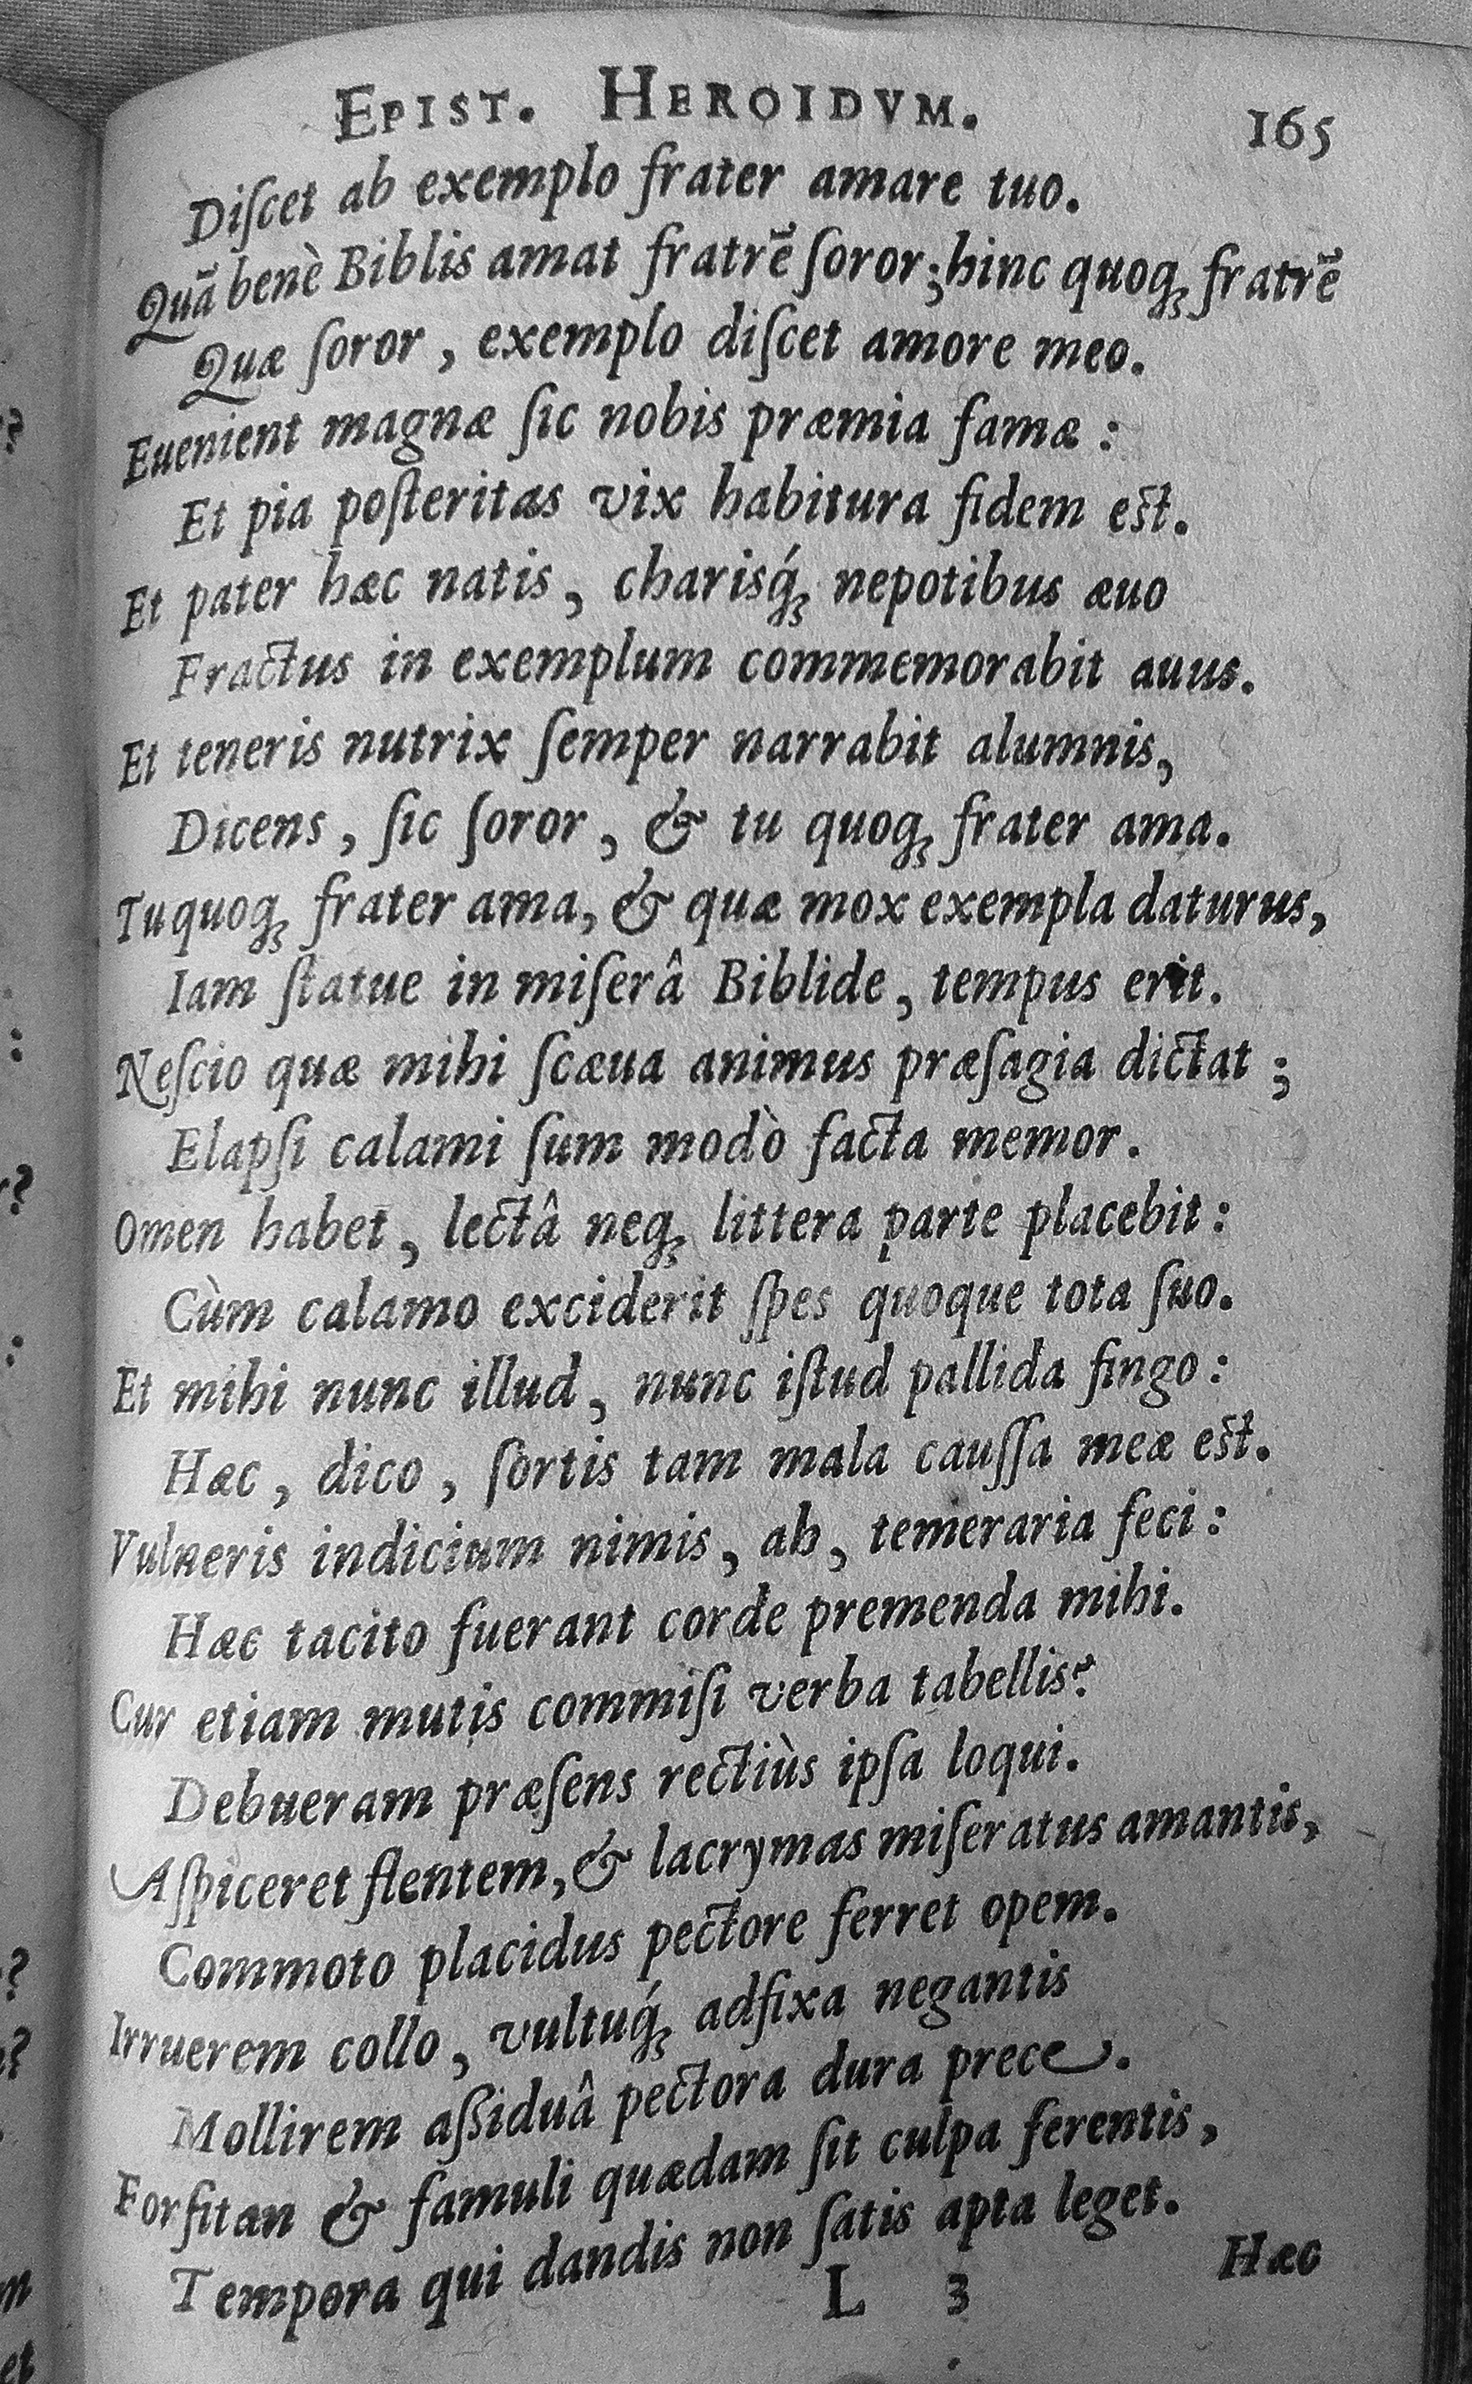 EPIST. HEROIDVM. 165
Diſcet ab exemplo frater amare tuo.
Quā benè Biblis amat fratrē ſoror; hinc quoq; fratrē
Quæ ſoror, exemplo diſcet amore meo.
Euenient magnæ ſic nobis præmia famæ:
Et pia poſteritas vix habitura fidem est.
Et pater hæc natis, charisq́; nepotibus æuo
Fractus in exemplum commemorabit auus.
Et teneris nutrix ſemper narrabit alumnis,
Dicens, ſic ſoror, & tu quoq; frater ama.
Tu quoq; frater ama, & quæ mox exempla daturus,
Iam ſtatue in miſerâ Biblide, tempus erit.
Neſcio quæ mihi ſcæua animus præſagia dictat;
Elapſi calami ſum modò facta memor.
Omen habet, lectâ neq; littera parte placebit:
Cùm calamo exciderit ſpes quoque tota ſuo.
Et mihi nunc illud, nunc iſtud pallida fingo:
Hæc, dico, ſortis tam mala cauſſa meæ est.
Vulneris indicium nimis, ah, temeraria feci:
Hæc tacito fuerant corde premenda mihi.
Cur etiam mutis commiſi verba tabellis?
Debueram præſens rectiùs ipſa loqui.
Aſpiceret flentem, & lacrymas miſeratus amantis,
Commoto placidus pectore ferret opem.
Irruerem collo, vultuq́; adfixa negantis
Mollirem aſsiduâ pectora dura prece.
Forſitan & famuli quædam ſit culpa ferentis,
Tempora qui dandis non ſatis apta leget.
L 3 Hæc